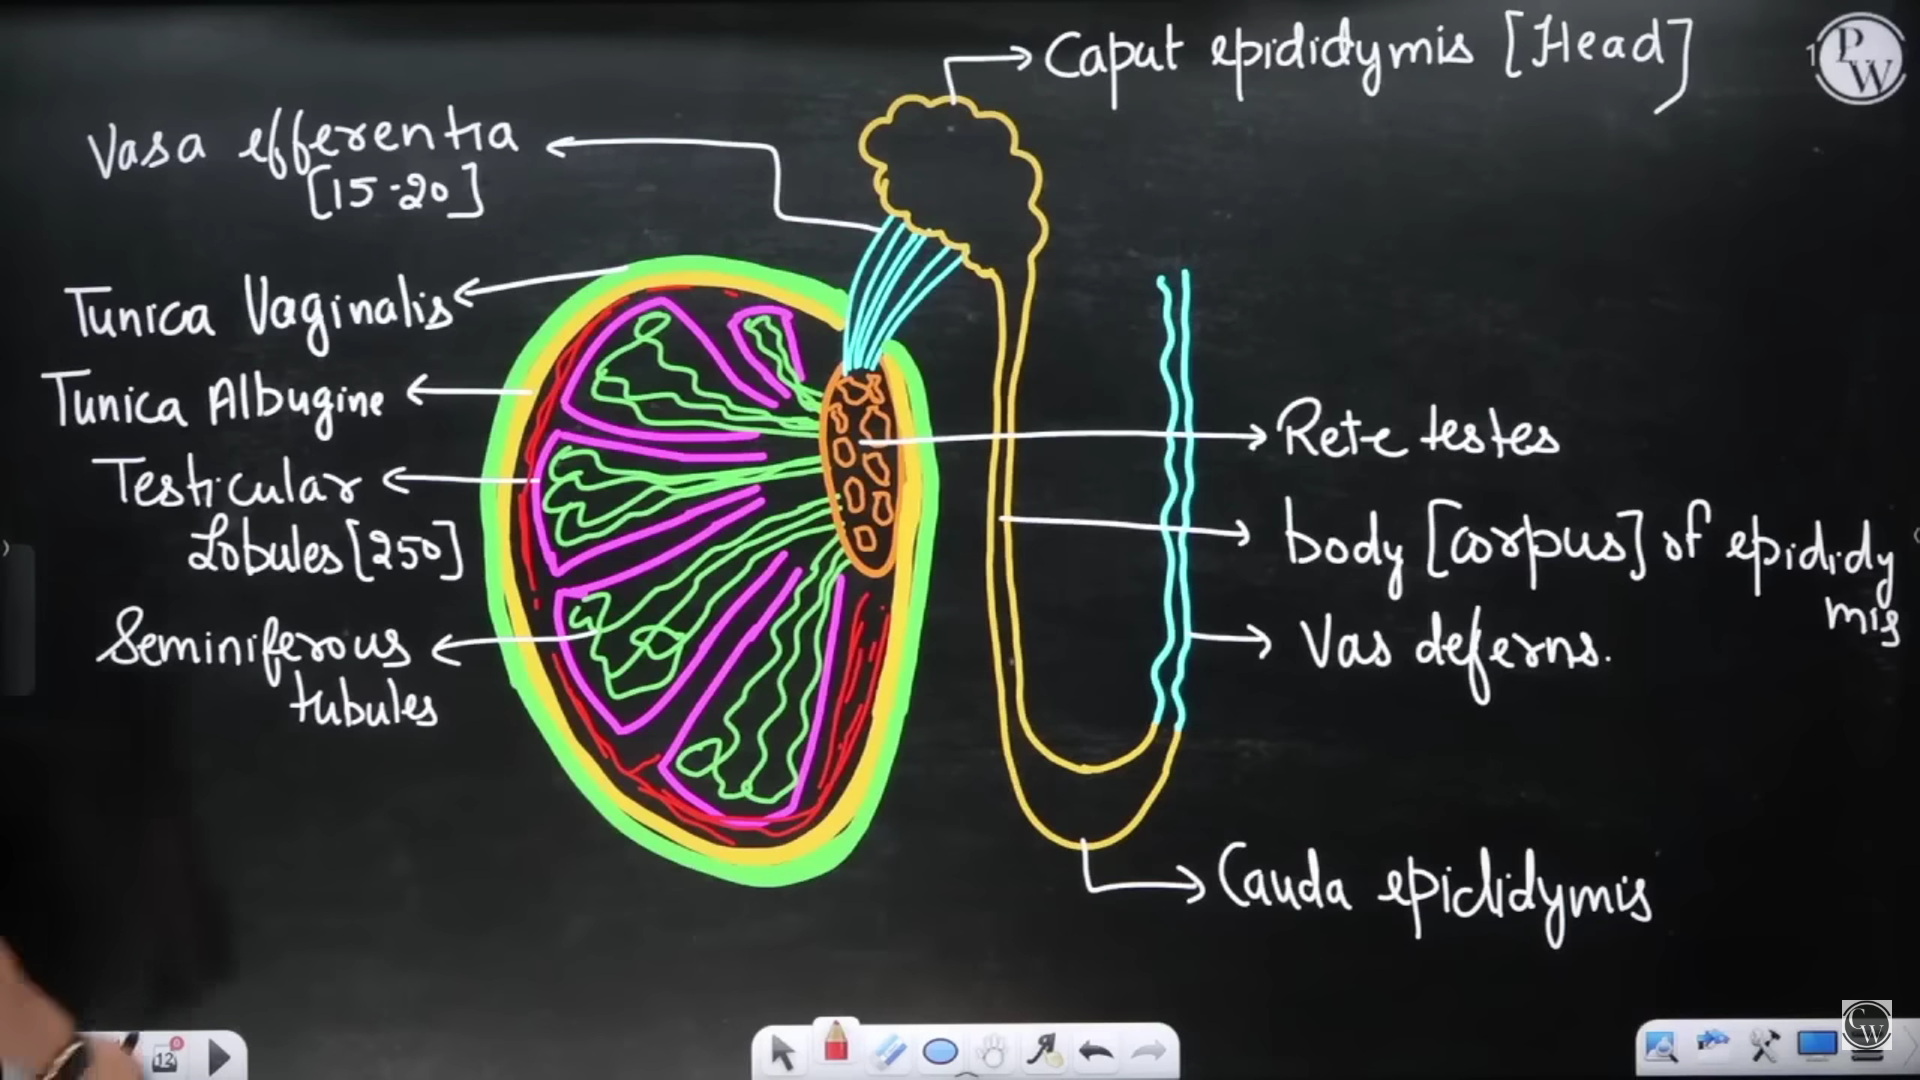 Caput epididymis [Head]
PW
Vasa efferentia
[15-20]
Tunica Vaginalis
Tunica Albugine
Testicular
Lobules [250]
Seminiferous
tubules
Rete testes
body [corpus] of epididy
mis
Vas deferns.
Cauda epididymis
12
CW